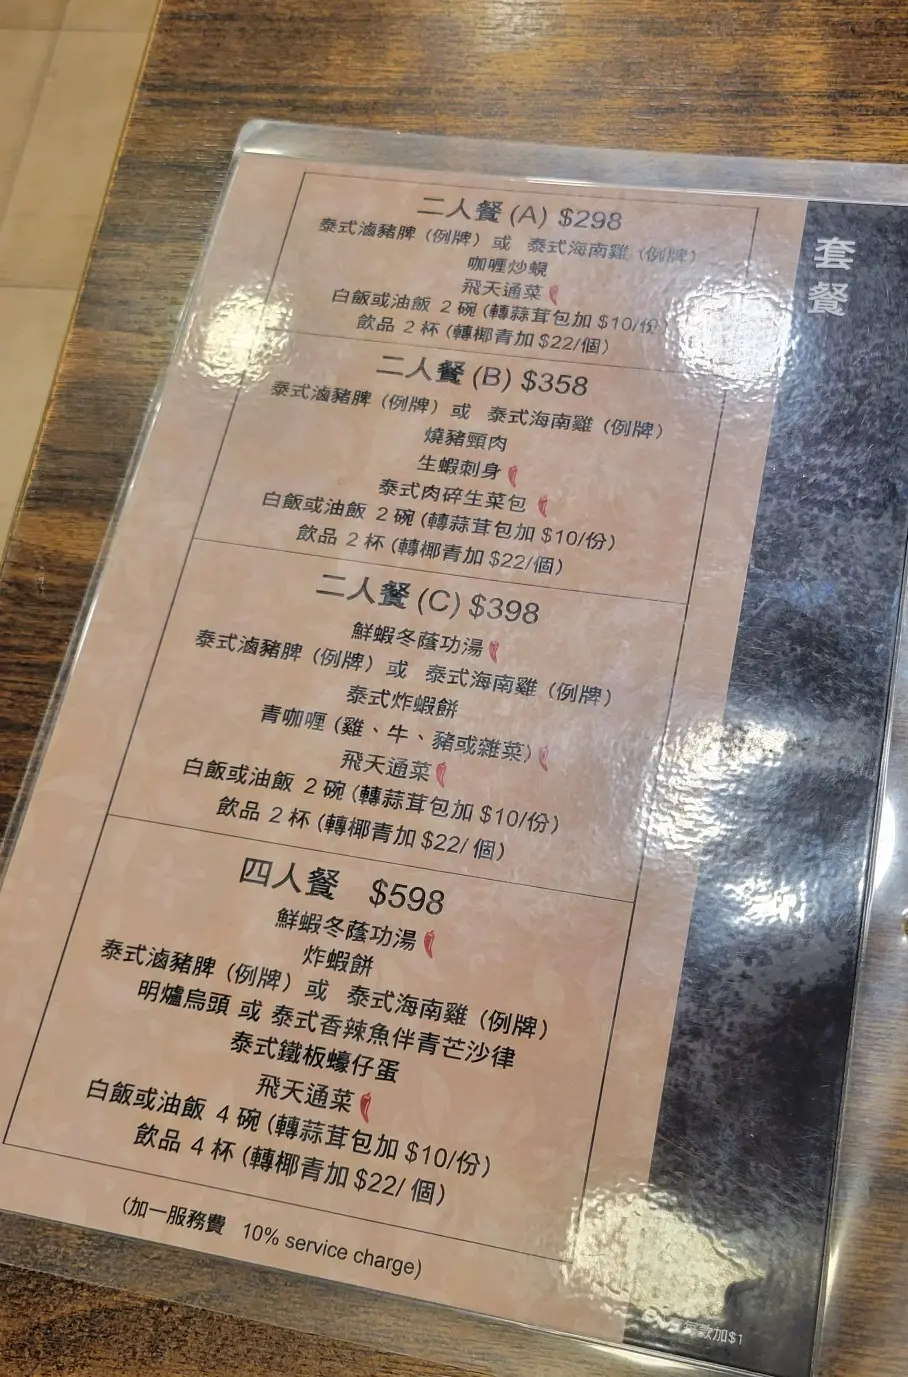 套餐
二人餐 (A) $298
泰式滷豬脾 (例牌) 或 泰式海南雞 (例牌)
咖喱炒蜆
飛天通菜
白飯或油飯 2 碗 (轉蒜茸包加 $10/份)
飲品 2 杯 (轉椰青加 $22/個)
二人餐 (B) $358
泰式滷豬脾 (例牌) 或 泰式海南雞 (例牌)
燒豬頸肉
生蝦刺身
泰式肉碎生菜包
白飯或油飯 2 碗 (轉蒜茸包加 $10/份)
飲品 2 杯 (轉椰青加 $22/個)
二人餐 (C) $398
鮮蝦冬蔭功湯
泰式滷豬脾 (例牌) 或 泰式海南雞 (例牌)
泰式炸蝦餅
青咖喱 (雞、牛、豬或雜菜)
飛天通菜
白飯或油飯 2 碗 (轉蒜茸包加 $10/份)
飲品 2 杯 (轉椰青加 $22/ 個)
四人餐 $598
鮮蝦冬蔭功湯
炸蝦餅
泰式滷豬脾 (例牌) 或 泰式海南雞 (例牌)
明爐烏頭 或 泰式香辣魚伴青芒沙律
泰式鐵板蠔仔蛋
飛天通菜
白飯或油飯 4 碗 (轉蒜茸包加 $10/份)
飲品 4 杯 (轉椰青加 $22/ 個)
(加一服務費 10% service charge)
加$1